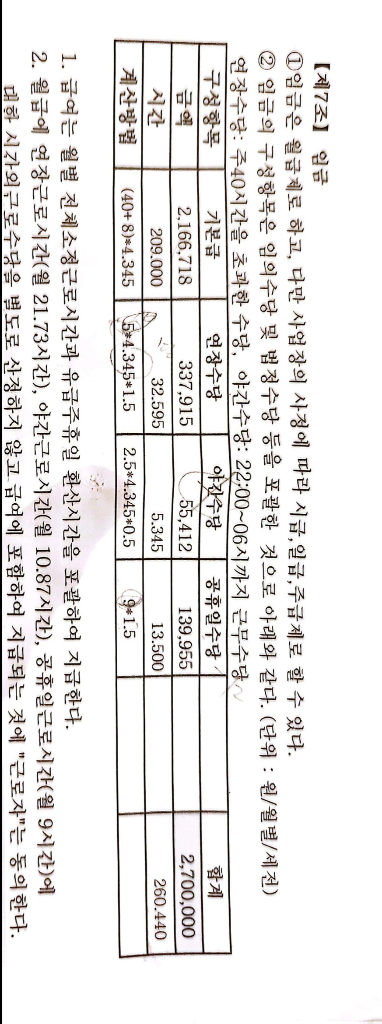 【제7조】 임금
①임금은 월급제로 하고, 다만 사업장의 사정에 따라 시급,일급,주급제로 할 수 있다.
② 임금의 구성항목은 임의수당 및 법정수당 등을 포괄한 것으로 아래와 같다. (단위 : 원/월별/세전)
연장수당: 주40시간을 초과한 수당, 야간수당: 22:00~06시까지 근무수당
구성항목 기본급 연장수당 야간수당 공휴일수당 합계
금액 2,166,718 337,915 55,412 139,955 2,700,000
시간 209.000 32.595 5.345 13.500 260.440
계산방법 (40+8)*4.345 5*4.345*1.5 2.5*4.345*0.5 9*1.5
1. 급여는 월별 전체소정근로시간과 유급주휴일 환산시간을 포괄하여 지급한다.
2. 월급에 연장근로시간(월 21.73시간), 야간근로시간(월 10.87시간), 공휴일근로시간(월 9시간)에
대한 시간외근로수당을 별도로 산정하지 않고 급여에 포함하여 지급되는 것에 "근로자"는 동의한다.